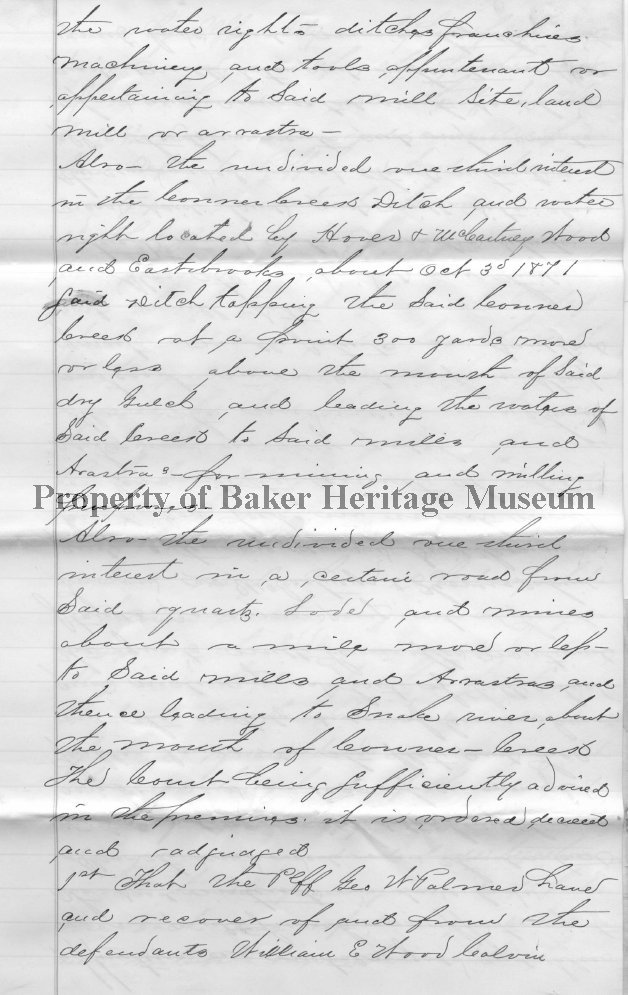 the water rights ditches franchises
machinery and tools appurtenant or
appertaining to Said mill Site, land
mill or arrastra –
Also – the undivided one third interest
in the Conner Creek Ditch and water
right located by Hover & McCartney Wood
and Eastabrooks, about Oct 3d 1871
Said Ditch tapping the Said Conner
Creek at a point 300 yards more
or less above the mouth of Said
dry Gulch and leading the waters of
Said Creek to Said mills and
Arastras – for mining and milling
Property of Baker Heritage Museum
purposes
Also – the undivided one third
interest in a certain road from
Said quartz Lode and mines
about a mile more or less –
to Said mills and Arrastras and
thence leading to Snake river, about
the mouth of Conner – Creek
The Court being Sufficiently advised
in the premises it is ordered, decreed
and adjudged
1st That the Plff Geo W Palmer have
and recover of and from the
defendants William E Wood Calvin